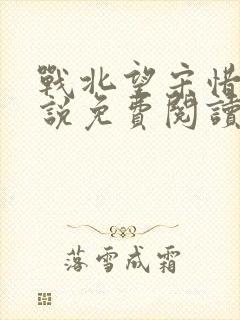 戰北望宋惜
說免費閱讀
落雪成霜